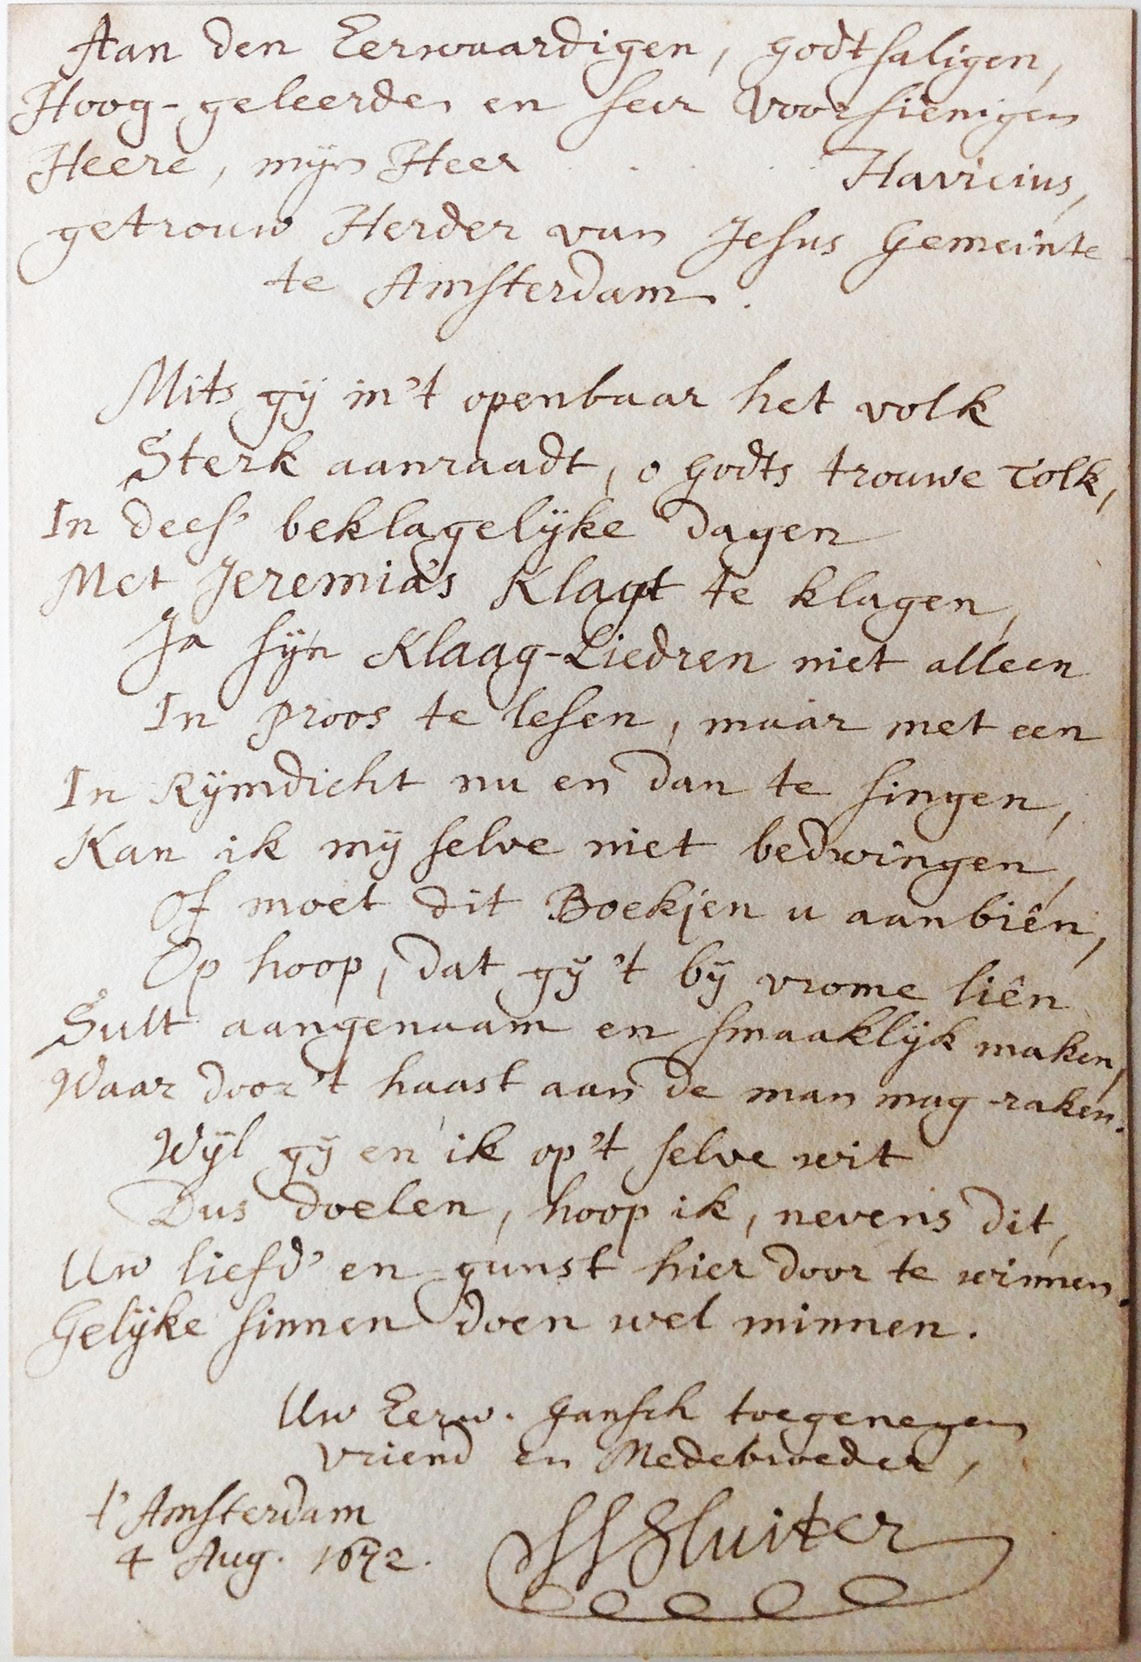 Aan den Eerwaardigen, godtsaligen,
Hoog-geleerden en seer voorsienigen
Heere, mijn Heer . . . . Havicius,
getrouw Herder van Jesus Gemeinte
te Amsterdam.
Mits gy in't openbaar het volk
Sterk aanraadt, o Godts trouwe Tolk,
In dees' beklagelijke dagen
Met Jeremia's Klagt te klagen,
Ja sijn Klaag-Liedren niet alleen
In proos te lesen, maar met een
In Rijmdicht nu en dan te singen,
Kan ik mij selve niet bedwingen,
Of moet dit Boekjen u aanbiên,
Op hoop, dat gij 't bij vrome liên
Sult aangenaam en smaaklijk maken,
Waar door 't haast aan de man mag raken.
Wijl gij en ik op't selve wit
Dus doelen, hoop ik, nevens dit,
Uw liefd' en gunst hier door te winnen.
Gelijke sinnen doen wel minnen.
Uw Eerw. gansch toegenegen
vriend en Medebroeder,
t'Amsterdam
4 Aug. 1672.
Sluiter